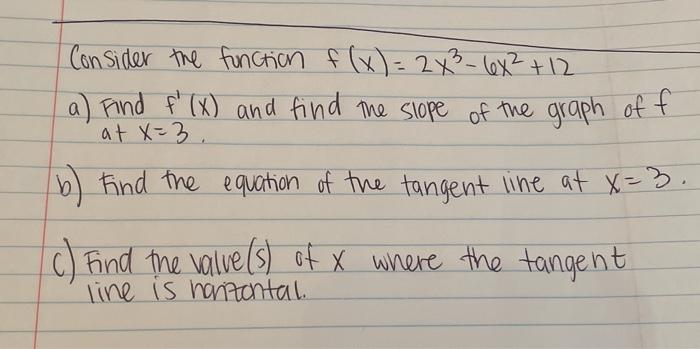 Consider the function f(x) = 2x³ - 6x² + 12
a) Find f'(x) and find the slope of the graph of f
at x = 3.
b) Find the equation of the tangent line at x = 3.
c) Find the value(s) of x where the tangent
line is horizontal.